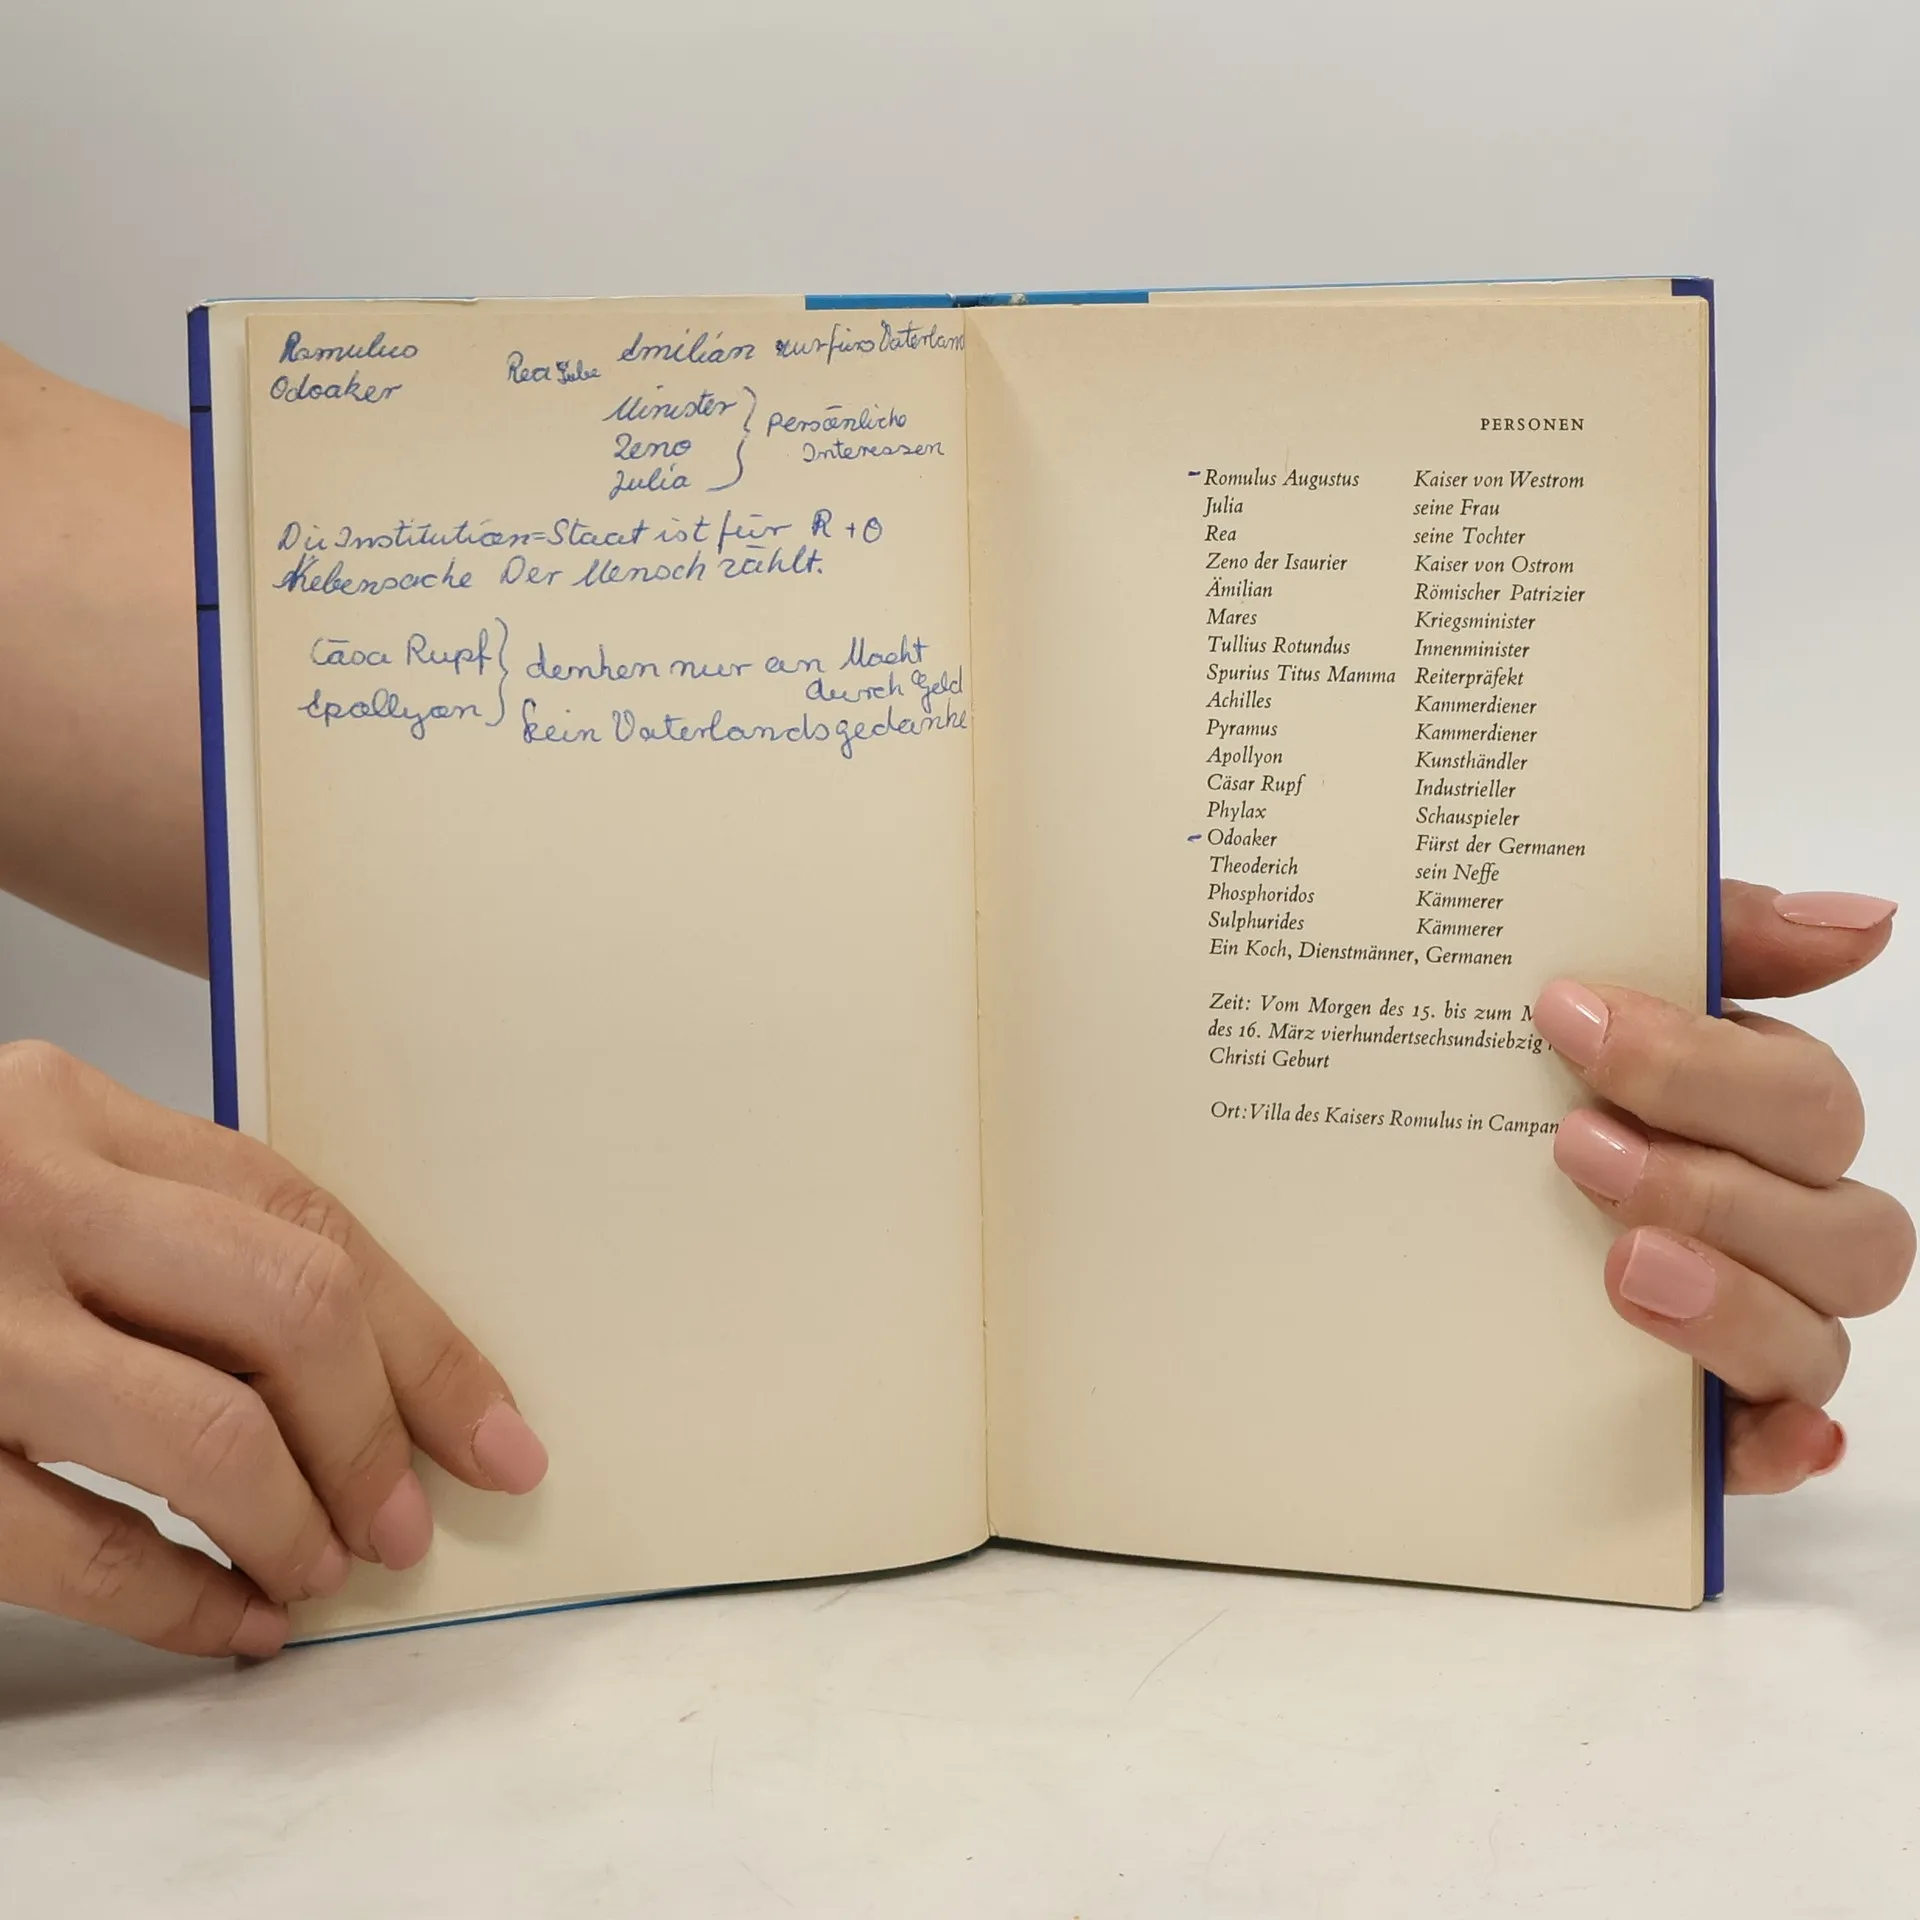 Romulus
Odoaker
Rea Emilian nur fürs Vaterland
Minister
Zeno
Julia
persönliche
Interessen
Die Institution=Staat ist für R + O
Nebensache Der Mensch zählt.
Cäsa Rupf
Apollyon
denken nur an Macht
durch Geld
kein Vaterlandsgedanke
PERSONEN
Romulus Augustus Kaiser von Westrom
Julia seine Frau
Rea seine Tochter
Zeno der Isaurier Kaiser von Ostrom
Ämilian Römischer Patrizier
Mares Kriegsminister
Tullius Rotundus Innenminister
Spurius Titus Mamma Reiterpräfekt
Achilles Kammerdiener
Pyramus Kammerdiener
Apollyon Kunsthändler
Cäsar Rupf Industrieller
Phylax Schauspieler
Odoaker Fürst der Germanen
Theoderich sein Neffe
Phosphoridos Kämmerer
Sulphurides Kämmerer
Ein Koch, Dienstmänner, Germanen
Zeit: Vom Morgen des 15. bis zum M
des 16. März vierhundertsechsundsiebzig
Christi Geburt
Ort: Villa des Kaisers Romulus in Campan